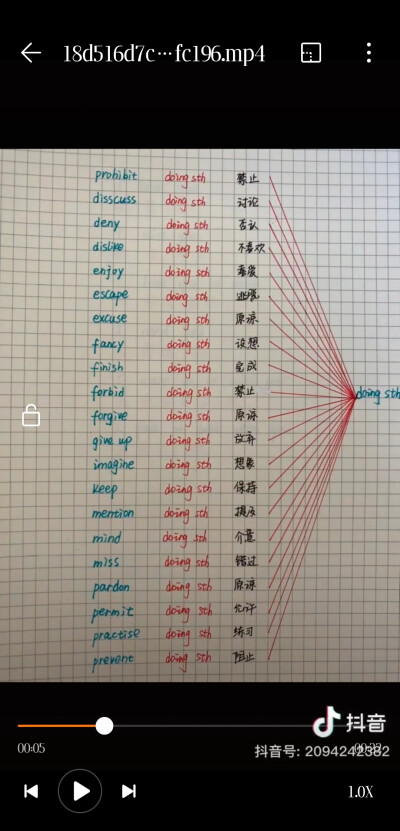 18d516d7c…fc196.mp4
prohibit doing sth 禁止
disscuss doing sth 讨论
deny doing sth 否认
dislike doing sth 不喜欢
enjoy doing sth 喜爱
escape doing sth 逃脱
excuse doing sth 原谅
fancy doing sth 设想
finish doing sth 完成
forbid doing sth 禁止
doing sth
forgive doing sth 原谅
give up doing sth 放弃
imagine doing sth 想象
keep doing sth 保持
mention doing sth 提及
mind doing sth 介意
miss doing sth 错过
pardon doing sth 原谅
permit doing sth 允许
practise doing sth 练习
prevent doing sth 阻止
抖音
00:05
抖音号: 2094242382
1.0X